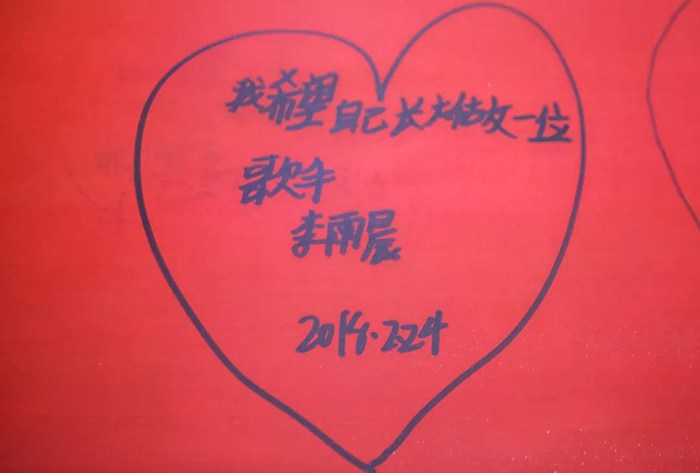 我希望自己长大估女一位
歌手
李雨晨
2014.2.24